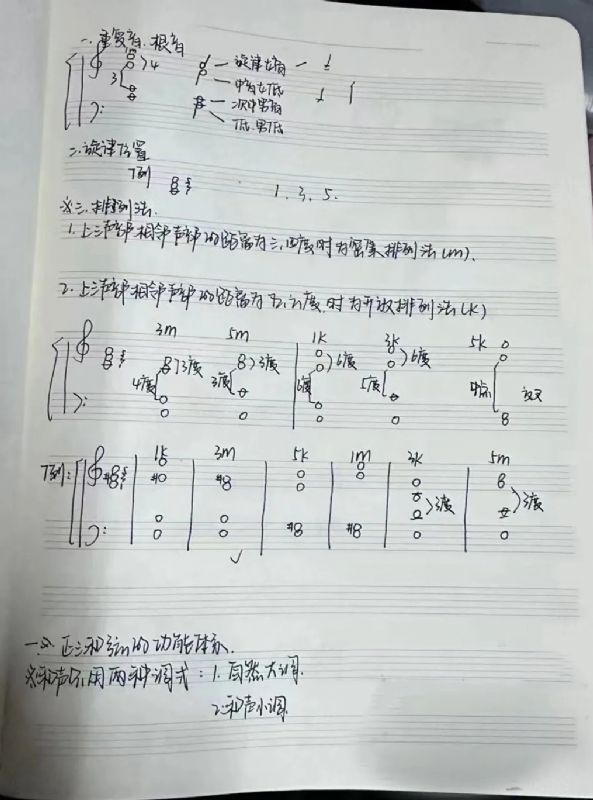 一. 重复音. 根音
4
3
旋律 女高
中音 女低
次中 男高
低. 男低
二. 旋律位置
1. 3. 5.
※三. 排列法.
1. 上三声部相邻声部的距离为三、四度时为密集排列法(m).
2. 上三声部相邻声部的距离为五、六度.时为开放排列法(k)
3m 5m 1k 3k 5k
3度 3度 6度 6度
4度 3度 6度 5度
1k 3m 5k 1m 3k 5m
3度 3度
一※. 正三和弦的功能体系.
※和声只用两种调式:1. 自然大调.
2. 和声小调